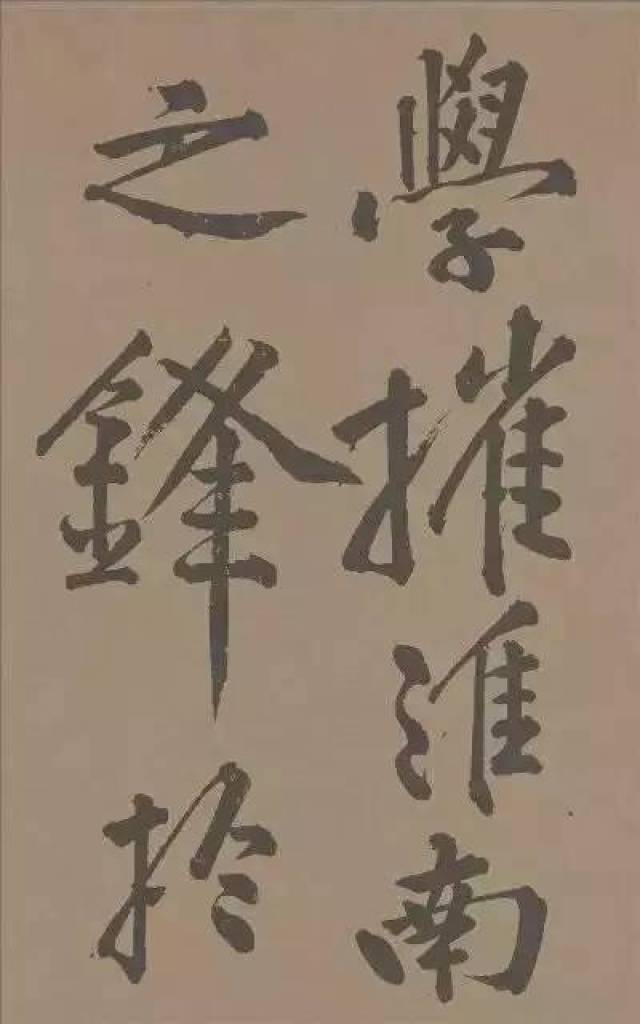 學摧淮南
之鋒於